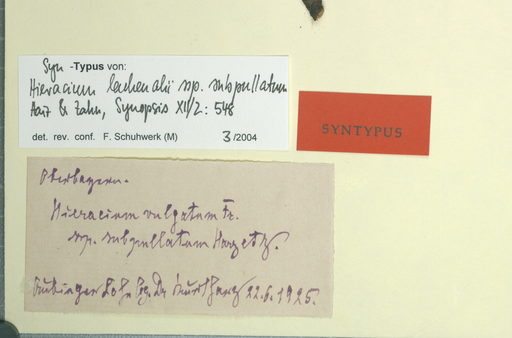 Syn -Typus von:
Hieracium lachenalii ssp. subpullatum
& Zahn, Synopsis XII/2: 548
det. rev. conf. F. Schuhwerk (M) 3/2004
SYNTYPUS
Oberbayern.
Hieracium vulgatum Fr.
ssp. subpullatum Harz et Z.
lg. Dr. Kurt Harz 22.6.1925.